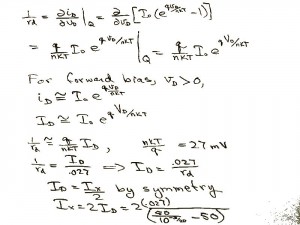 1/rd = ∂iD/∂vD |Q = ∂/∂vD [Io (e^(qvD/nKT) - 1)]
= q/nKT Io e^(qvD/nKT) |Q = q/nKT Io e^(qVD/nKT)
For forward bias, VD > 0,
iD ≅ Io e^(qvD/nKT)
ID ≅ Io e^(qVD/nKT)
1/rd ≅ q/nKT ID, nKT/q = 27 mV
1/rd = ID/.027 => ID = .027/rd
ID = Ix/2 by symmetry
Ix = 2 ID = 2 (.027)